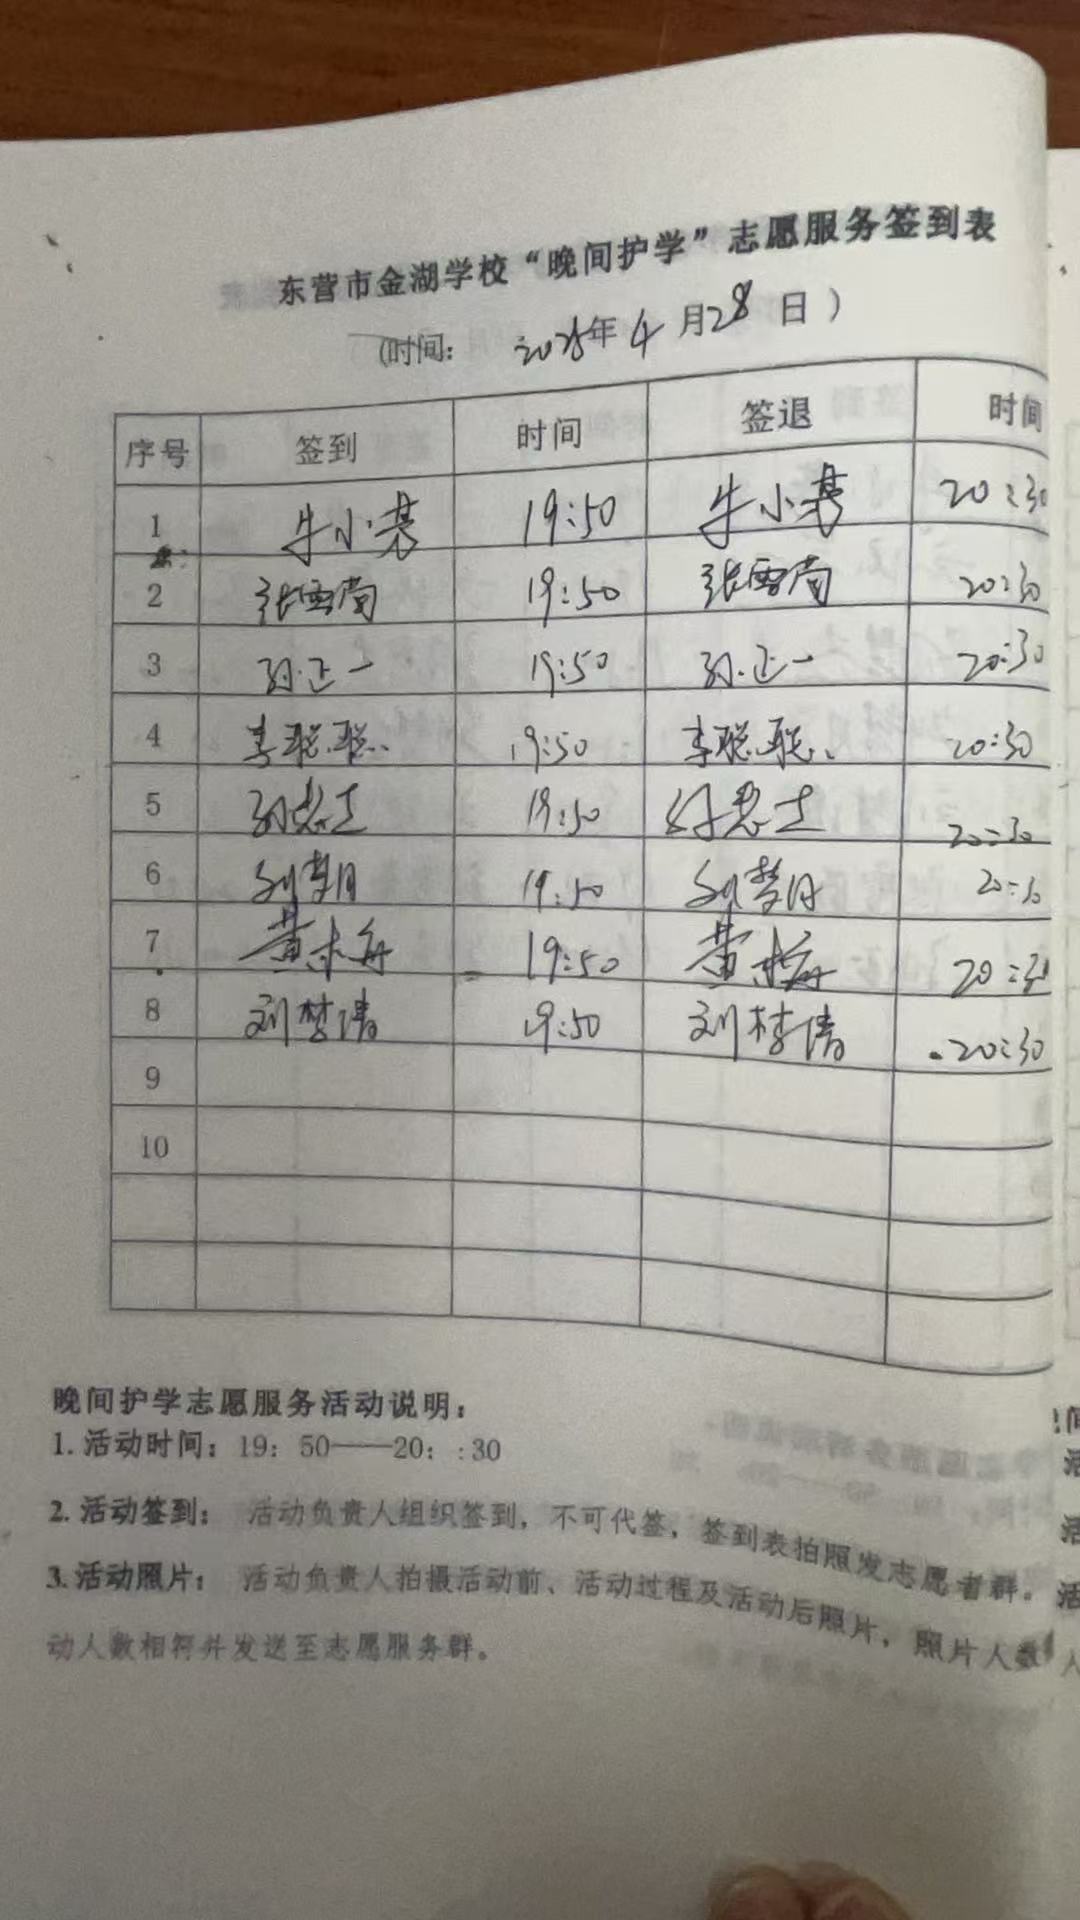 东营市金湖学校“晚间护学”志愿服务签到表
(时间: 2025年4月28日)
序号 签到 时间 签退 时间
1 牛小 19:50 牛小 20:30
2 张雪 19:50 张雪 20:30
3 孙正一 19:50 孙正一 20:30
4 李聪聪 19:50 李聪聪 20:30
5 孙志 19:50 孙志 20:30
6 刘梦月 19:50 刘梦月 20:30
7 黄 19:50 黄 20:3
8 刘梦倩 19:50 刘梦倩 20:30
9
10
晚间护学志愿服务活动说明:
1. 活动时间: 19: 50——20: :30
2. 活动签到: 活动负责人组织签到, 不可代签, 签到表拍照发志愿者群。
3. 活动照片: 活动负责人拍摄活动前、活动过程及活动后照片, 照片人数
动人数相符并发送至志愿服务群。